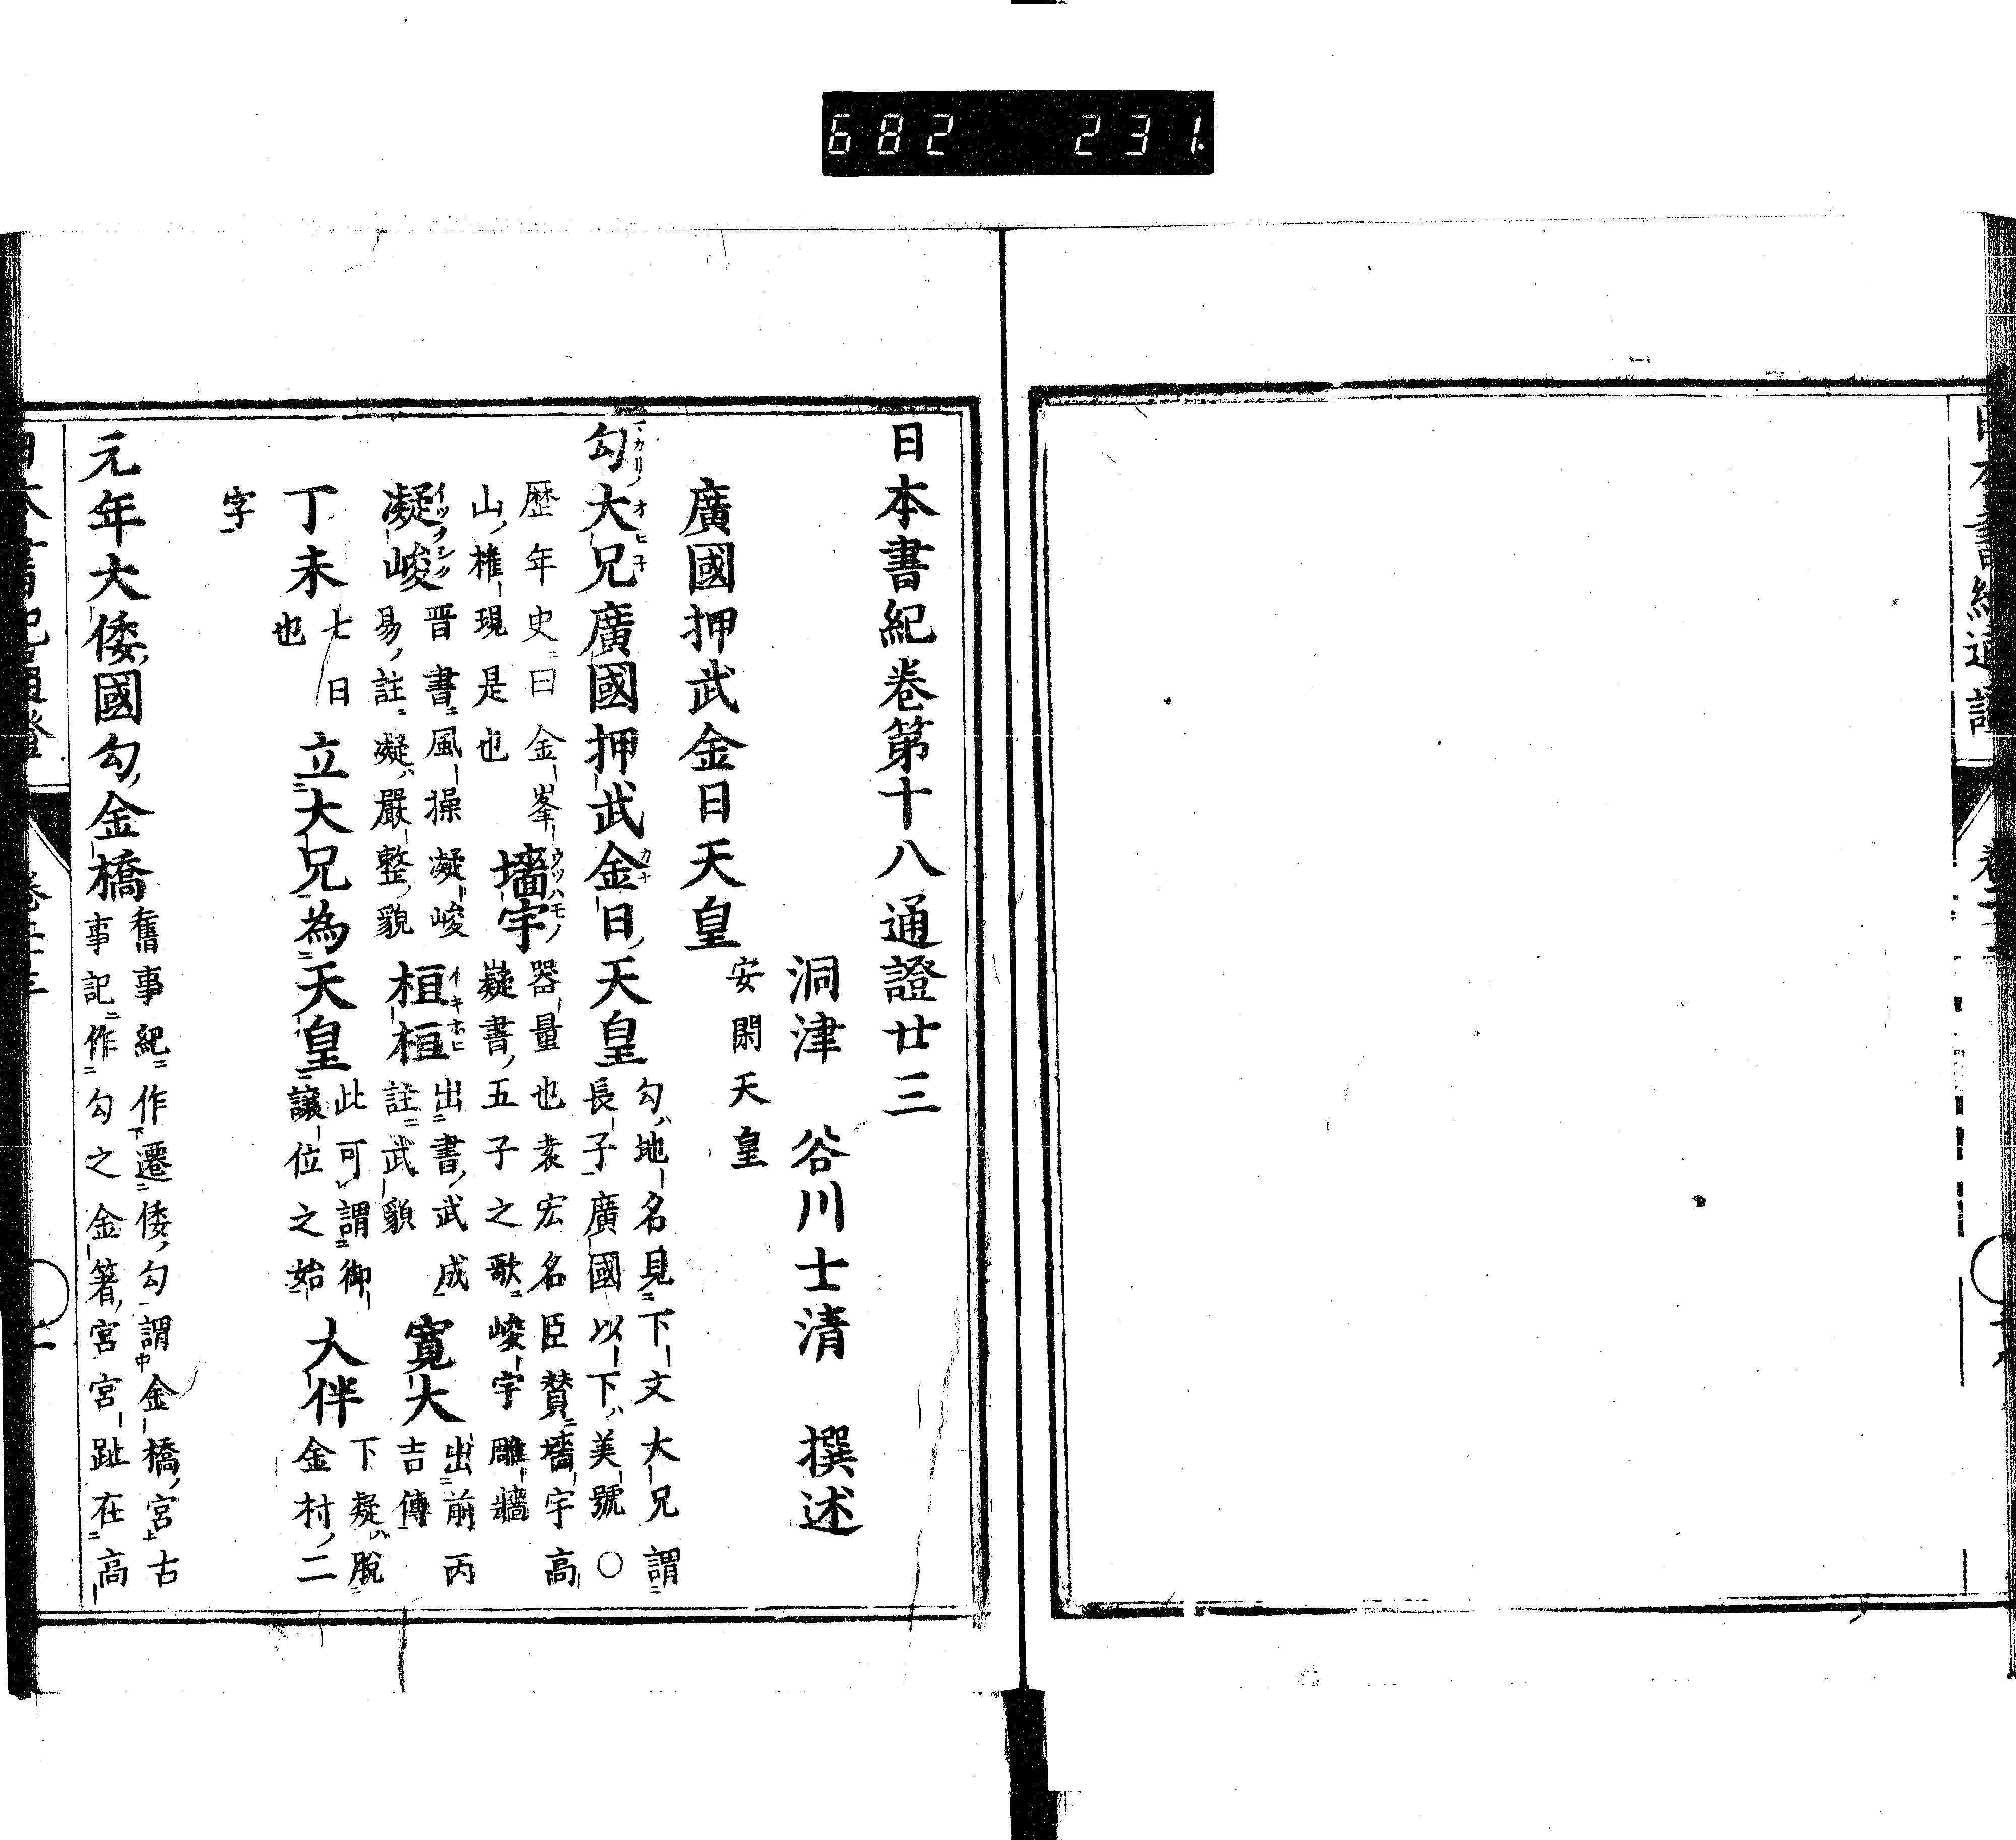 682 231
日本書紀卷第十八通證廿三
洞津 谷川士清 撰述
廣國押武金日天皇 安閑天皇
勾大兄廣國押武金日天皇 勾ハ地名見下文大兄謂
長子廣國以下ハ美號○
歷年史曰金峯
山權現是也
墻宇 器量也袁宏名臣贊墻宇高
嶷書五子之歌峻宇雕牆
凝峻 晋書風操凝峻
易註凝ハ嚴整貌
桓桓 出書武成
註武貌
寬大 出前丙
吉傳
丁未 七日
也
立大兄為天皇 此可謂御
讓位之始
大伴 下疑脫
金村二
字
元年大倭國勾金橋 舊事紀作遷倭勾謂金橋宮古
事記作勾之金箸宮宮趾在高